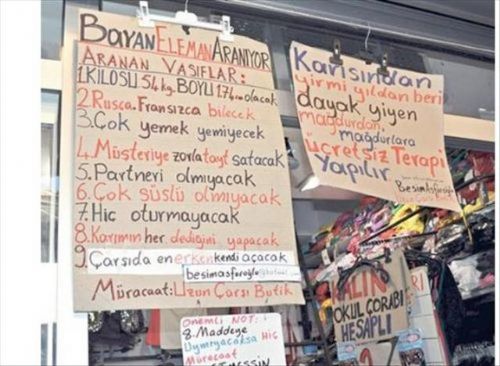 BAYAN ELEMAN ARANIYOR
ARANAN VASIFLAR:
1.KILOSU 54 kg. BOYU 1.74 cm olacak
2.Rusça. Fransızca bilecek
3.Çok yemek yemiyecek
4.Müşteriye zorla tayt satacak
5.Partneri olmıyacak
6.Çok süslü olmıyacak
7.Hiç oturmayacak
8.Karımın her dediğini yapacak
9.Çarşıda en erken kendi açacak
Müracaat: Uzun Çarşı Butik
Karısından
yirmi yıldan beri
dayak yiyen
mağdurdan,
mağdurlara
ücretsiz Terapi
Yapılır
Besim Asfuroğlu
Uzun Çarşı Butik
ÖNEMLİ NOT:
8. Maddeye
Uymıyacaksa Hiç
Müracaat
ETMESSİN
KALIN
OKUL ÇORABI
HESAPLI